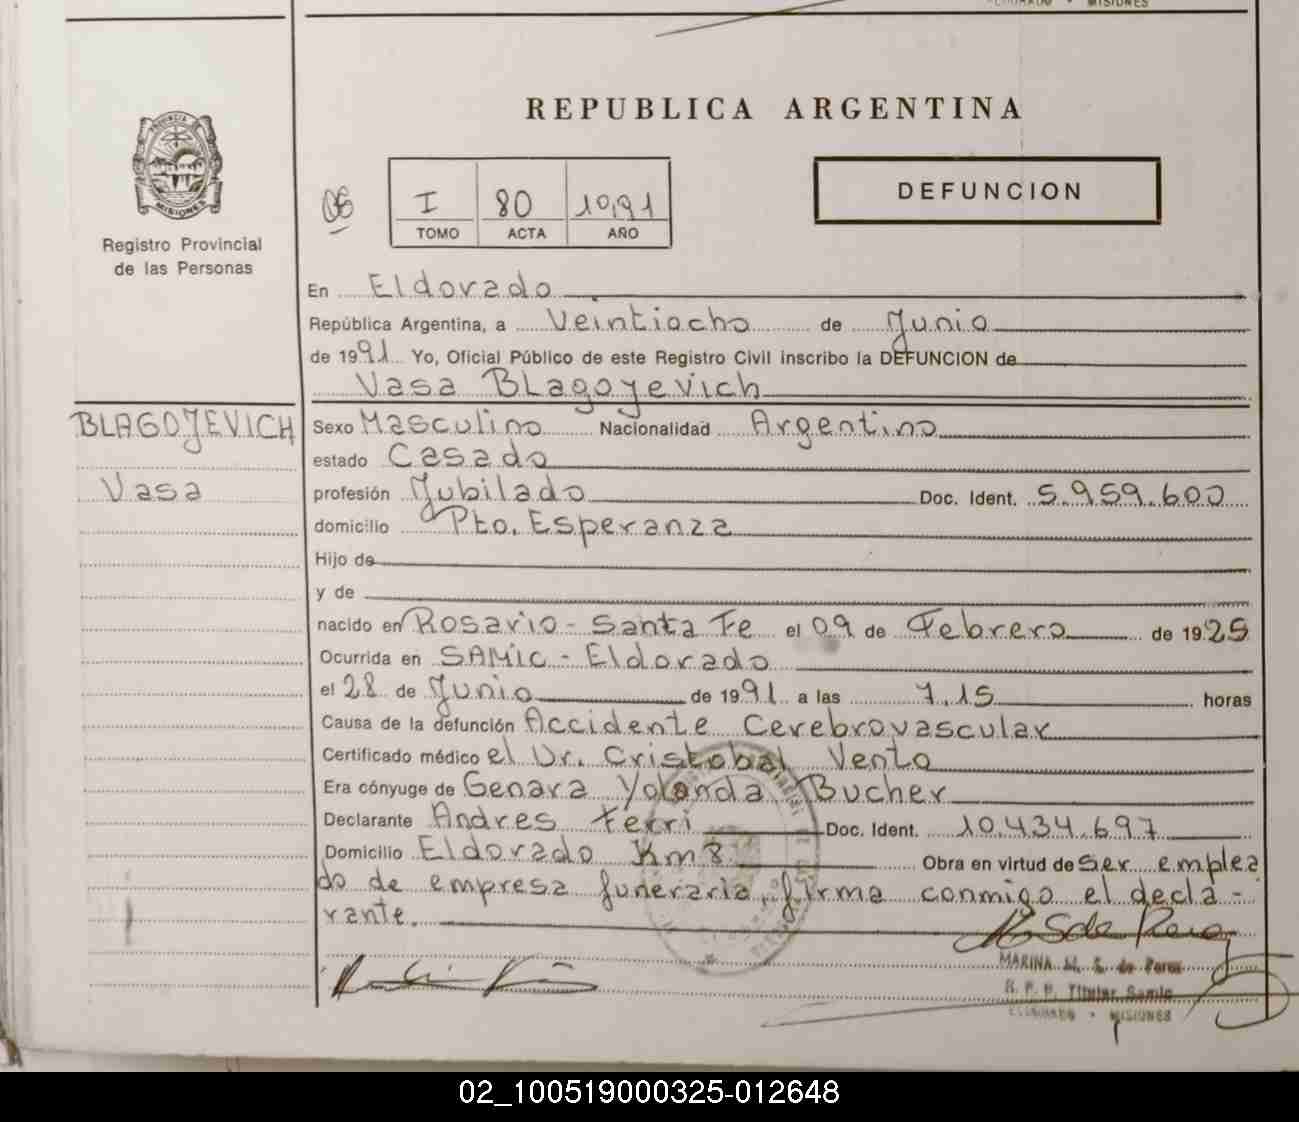 REPUBLICA ARGENTINA
PROVINCIA DE
MISIONES
Registro Provincial
de las Personas
06
I 80 1991
TOMO ACTA AÑO
DEFUNCION
En Eldorado
República Argentina, a Veintiocho de Junio
de 1991 Yo, Oficial Público de este Registro Civil inscribo la DEFUNCION de
Vasa BLagojevich
BLAGOJEVICH
Vasa
Sexo Masculino Nacionalidad Argentino
estado Casado
profesión Jubilado Doc. Ident. 5.959.600
domicilio Pto. Esperanza
Hijo de
y de
nacido en Rosario - Santa Fe el 09 de Febrero de 1925
Ocurrida en SAMIC - Eldorado
el 28 de Junio de 1991 a las 7.15 horas
Causa de la defunción Accidente Cerebrovascular
Certificado médico el Dr. Cristobal Vento
Era cónyuge de Genara Yolanda Bucher
Declarante Andres Ferri Doc. Ident. 10.434.697
Domicilio Eldorado Km 8 Obra en virtud de ser emplea
do de empresa funeraria, firma conmigo el decla-
rante.
MARINA M. S. de Perez
R. P. P. Titular Samic
ELDORADO - MISIONES
02_100519000325-012648